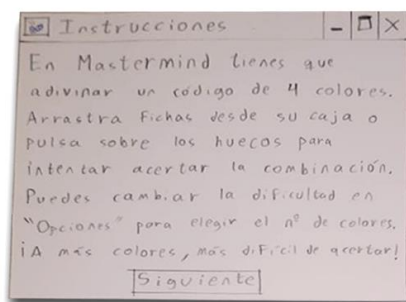 Instrucciones
En Mastermind tienes que
adivinar un código de 4 colores.
Arrastra fichas desde su caja o
pulsa sobre los huecos para
intentar acertar la combinación.
Puedes cambiar la dificultad en
"Opciones" para elegir el nº de colores.
¡A más colores, más difícil de acertar!
Siguiente